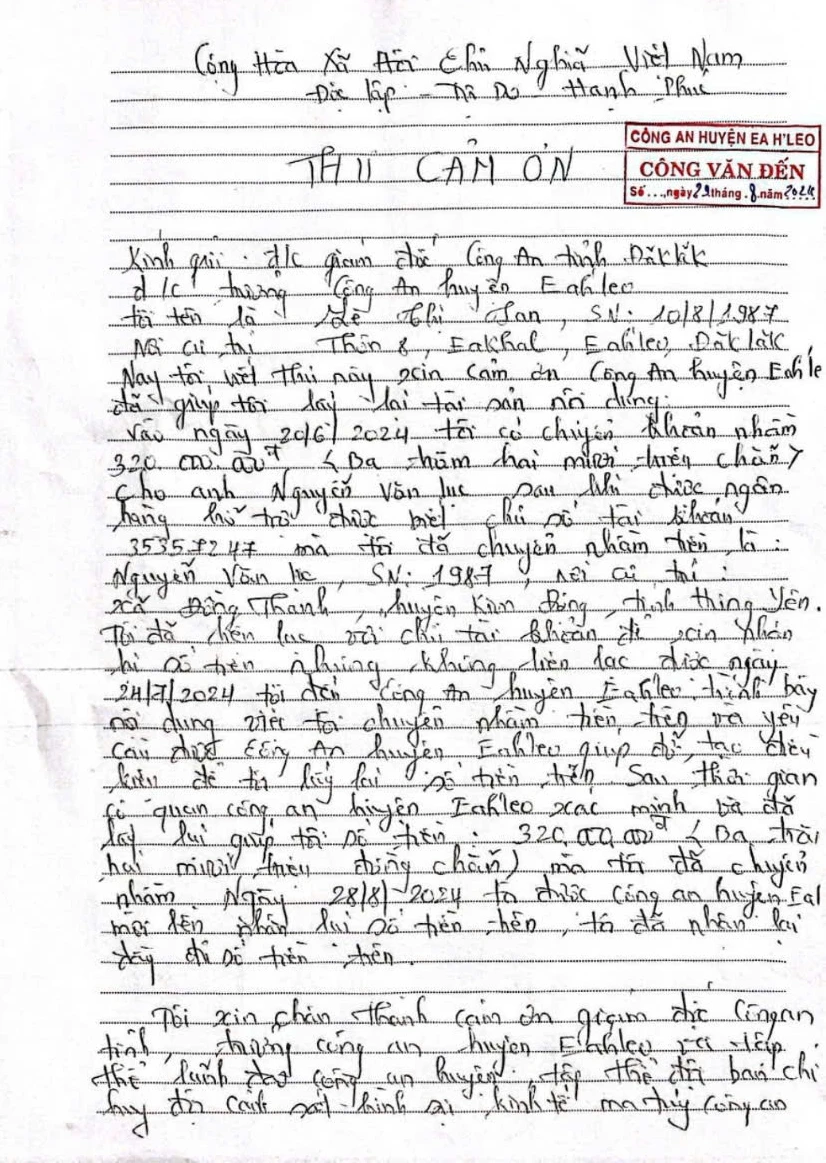 Cộng Hòa Xã Hội Chủ Nghĩa Việt Nam
Độc lập - Tự Do - Hạnh Phúc
CÔNG AN HUYỆN EA H'LEO
CÔNG VĂN ĐẾN
Số...,ngày 29 tháng 8 năm 2024
THƯ CẢM ƠN
Kính gửi: đ/c giám đốc Công An tỉnh Đăklăk
đ/c trưởng Công An huyện Eahleo
tôi tên là Lê Thị, SN: 10/8/1987
Nơi cư trú Thôn 8, Eakhal, Eahleo, Đăklăk
Nay tôi viết thư này xin cảm ơn Công An huyện Eahle
đã giúp tôi lấy lại tài sản nội dung:
vào ngày 20/6/2024 tôi có chuyển khoản nhầm
320.000.000đ (Ba trăm hai mươi triệu chẵn)
cho anh Nguyễn Văn lực sau khi được ngân
hàng hỗ trợ được biết chủ số tài khoản
35357247 mà tôi đã chuyển nhầm tiền là:
Nguyễn Văn lực, SN: 1987, nơi cư trú:
xã Đồng Thanh, huyện Kim Động, tỉnh Hưng Yên.
Tôi đã liên lạc với chủ tài khoản để xin nhận
lại số tiền nhưng không liên lạc được ngày
24/7/2024 tôi đến Công An huyện Eahleo trình bày
nội dung việc tôi chuyển nhầm tiền trên và yêu
cầu được Công An huyện Eahleo giúp đỡ, tạo điều
kiện để tôi lấy lại số tiền trên. Sau thời gian
cơ quan công an huyện Eahleo xác minh và đã
lấy lại giúp tôi số tiền: 320,000,000đ (Ba trăm
hai mươi triệu đồng chẵn) mà tôi đã chuyển
nhầm. Ngày 28/8/2024 tôi được công an huyện Eal
mời lên nhận lại số tiền trên, tôi đã nhận lại
đầy đủ số tiền trên.
Tôi xin chân thành cảm ơn giám đốc Công an
tỉnh, trưởng công an huyện Eahleo và tập
thể lãnh đạo công an huyện, tập thể đội ban chỉ
huy đội cảnh sát hình sự, kinh tế ma túy Công an